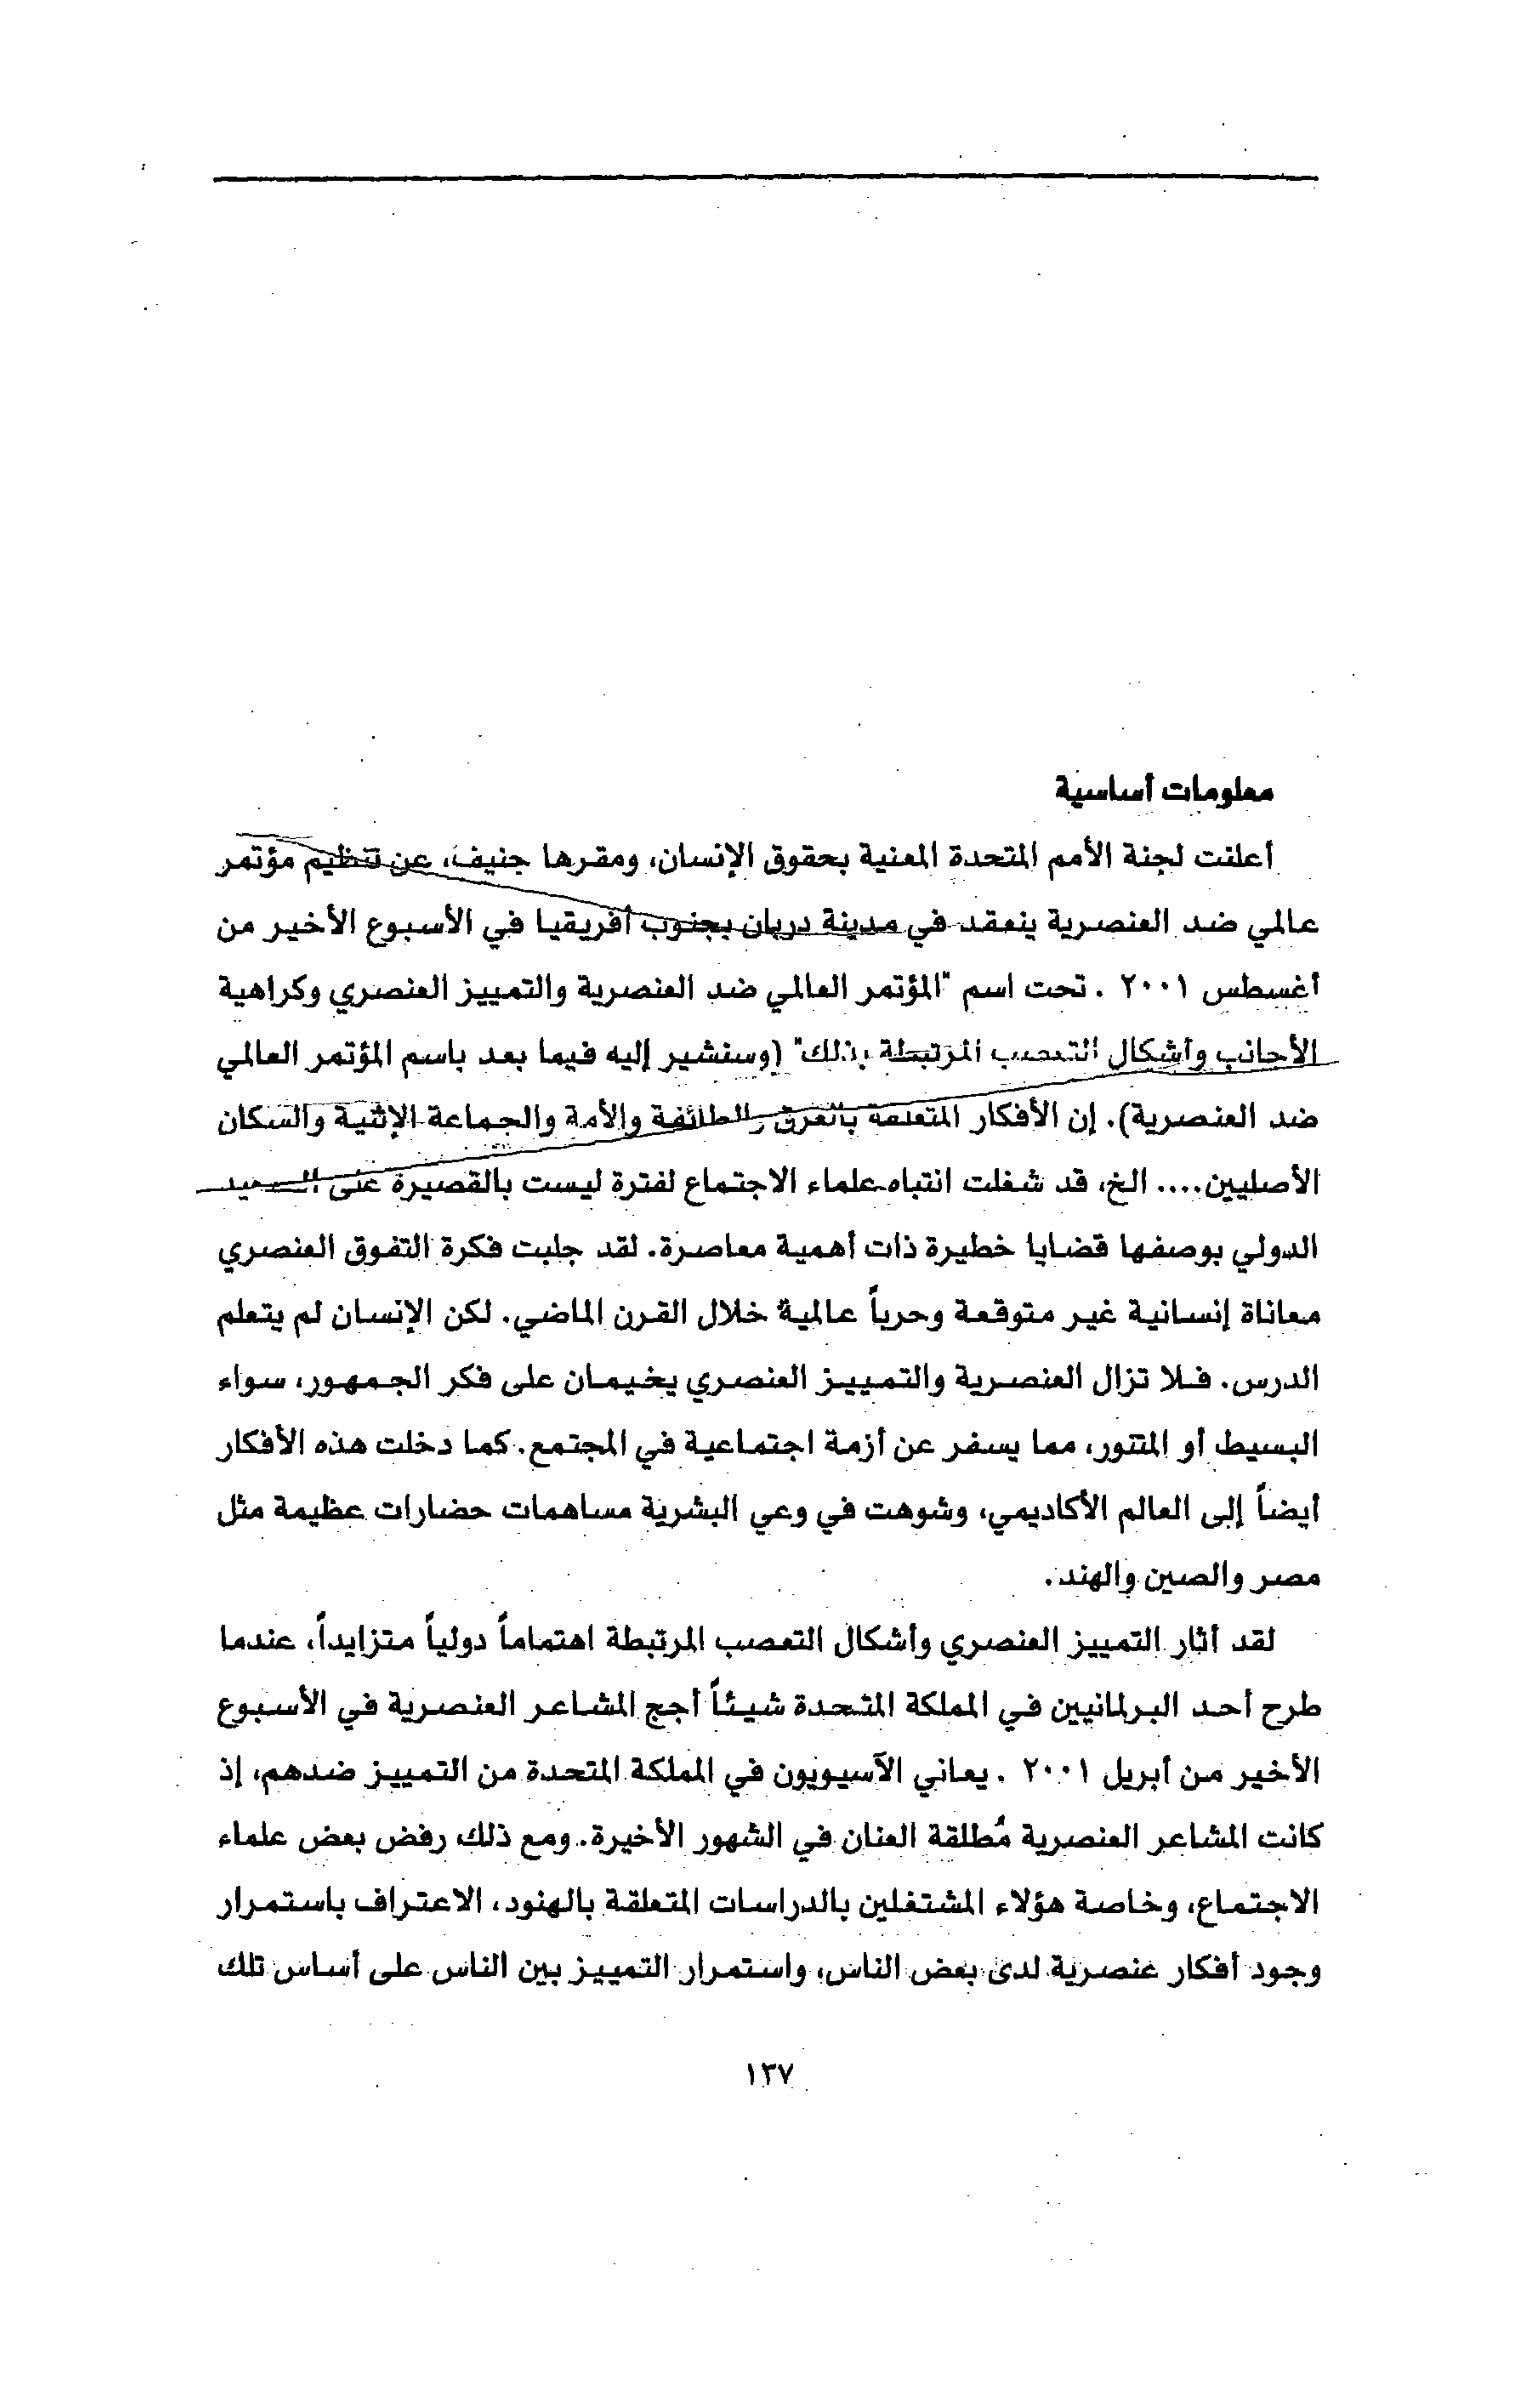 معلومات أساسية
أعلنت لجنة الأمم المتحدة المعنية بحقوق الإنسان، ومقرها جنيف، عن تنظيم مؤتمر
عالمي ضد العنصرية ينعقد في مدينة دربان بجنوب أفريقيا في الأسبوع الأخير من
أغسطس ٢٠٠١ . تحت اسم "المؤتمر العالمي ضد العنصرية والتمييز العنصري وكراهية
الأجانب وأشكال التعصب المرتبطة بذلك" (وسنشير إليه فيما بعد باسم المؤتمر العالمي
ضد العنصرية). إن الأفكار المتعلقة بالعرق والطائفة والأمة والجماعة الإثنية والسكان
الأصليين.... الخ، قد شغلت انتباه علماء الاجتماع لفترة ليست بالقصيرة على الصعيد
الدولي بوصفها قضايا خطيرة ذات أهمية معاصرة. لقد جلبت فكرة التفوق العنصري
معاناة إنسانية غير متوقعة وحرباً عالمية خلال القرن الماضي. لكن الإنسان لم يتعلم
الدرس. فلا تزال العنصرية والتمييز العنصري يخيمان على فكر الجمهور، سواء
البسيط أو المتنور، مما يسفر عن أزمة اجتماعية في المجتمع. كما دخلت هذه الأفكار
أيضاً إلى العالم الأكاديمي، وشوهت في وعي البشرية مساهمات حضارات عظيمة مثل
مصر والصين والهند.
لقد أثار التمييز العنصري وأشكال التعصب المرتبطة اهتماماً دولياً متزايداً، عندما
طرح أحد البرلمانيين في المملكة المتحدة شيئاً أجج المشاعر العنصرية في الأسبوع
الأخير من أبريل ٢٠٠١ . يعاني الآسيويون في المملكة المتحدة من التمييز ضدهم، إذ
كانت المشاعر العنصرية مُطلقة العنان في الشهور الأخيرة. ومع ذلك رفض بعض علماء
الاجتماع، وخاصة هؤلاء المشتغلين بالدراسات المتعلقة بالهنود، الاعتراف باستمرار
وجود أفكار عنصرية لدى بعض الناس، واستمرار التمييز بين الناس على أساس تلك
١٣٧